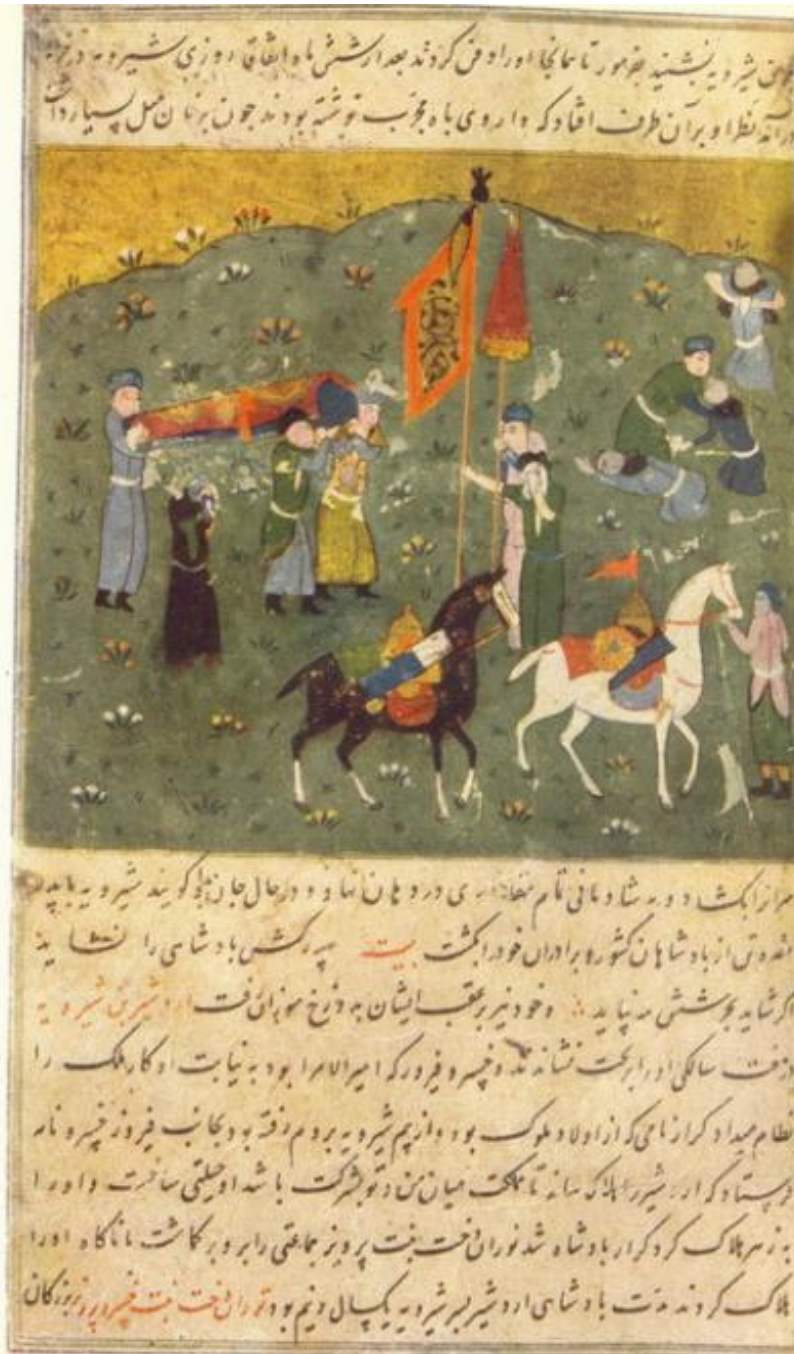 شیرویه بنشنید تا همانجا او را دفن کردند بعد از شش ماه اتفاقا روزی شیرویه در خزانه
در آمد نظر او بر آن ظرف افتاد که داروی باه مجرب نوشته بودند چون بزنان میل بسیار داشت
و در حال جان شیرویه با پدر
از بادشاهان کشور و برادران خود را بکشت بیت پدر کش بادشاهی را نشاید
اگر شاید بجز شش مه نپاید و خود نیز بر عقب ایشان به دوزخ رفت اردشیر بن شیرویه
در هفت سالگی او را بر تخت نشاندند و خسرو فیروز که امیر الامرا بود به نیابت او کار ملک را
نظام میداد کراز نامی که از اولاد ملوک بود و از بیم شیرویه بروم رفته بود بجانب فیروز خسرو نامه
فرستاد که اردشیر را هلاک تا مملکت میان من و تو بشرکت باشد او حیلتی ساخت و او را
به زهر هلاک کرد کراز بادشاه شد توران دخت بنت پرویز جماعتی را برو بر کاشت تا ناکاه او را
هلاک کردند مدت بادشاهی اردشیر بن شیرویه یکسال و نیم بود توران دخت بنت خسرو پرویز بزرکان